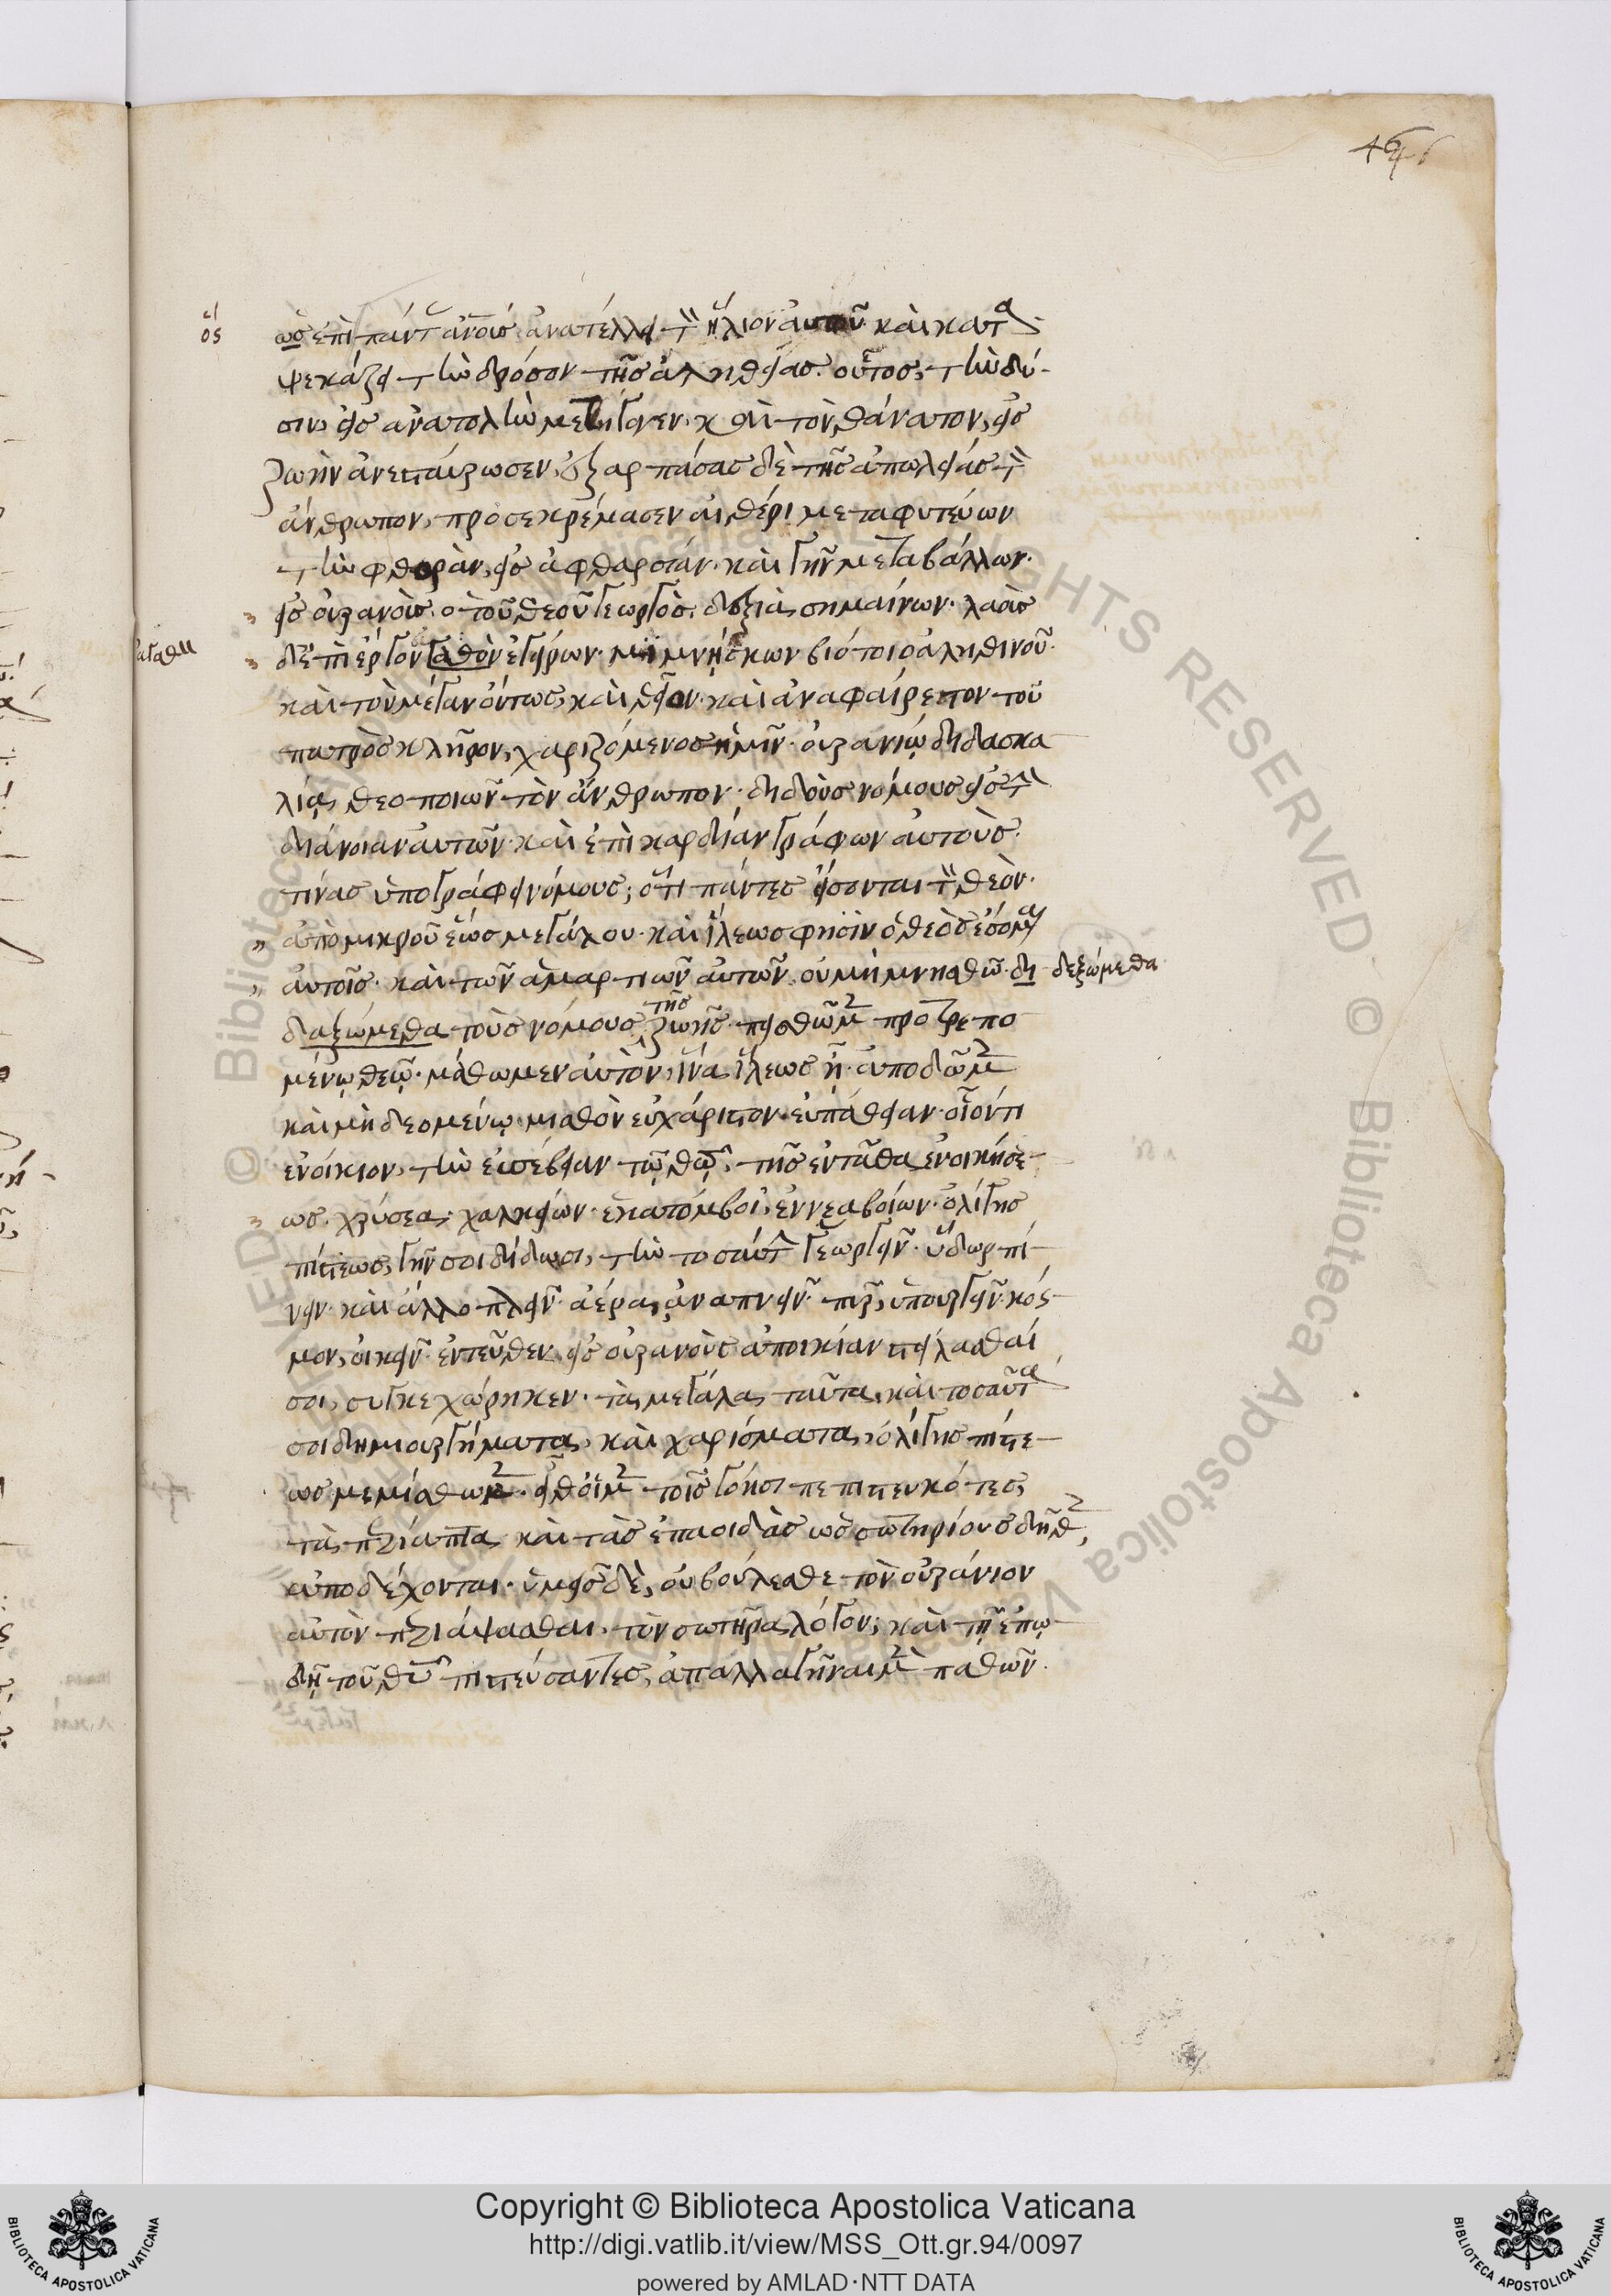 464
ὅς
ὡς ἐπὶ πάντ ἀνοις ἀνατέλλει τ ἥλιον αὐτοῦ καὶ κατα
ψεκάζει τὴν δρόσον τῆς ἀληθείας. οὗτος, τὴν δύ-
σιν, εἰς ἀνατολὴν μετήγαγεν. καὶ τὸν θάνατον, εἰς
ζωὴν ἀνεσταύρωσεν, ἐξαρπάσας δὲ τῆς ἀπωλείας τ
ἄνθρωπον, προσεκρέμασεν αἰθέρι μεταφυτεύων
τὴν φθορὰν, εἰς ἀφθαρσίαν. καὶ γῆν μεταβάλλων
εἰς οὐρανοὺς, ὁ τοῦ θεοῦ γεωργὸς, δεξιὰ σημαίνων. λαοὺς
ἀγαθὰ
δ' ἐπὶ ἔργον ἀγαθὸν ἐγείρων. μιμνήσκων βιότοιο ἀληθινοῦ.
καὶ τὸν μέγαν ὄντως, καὶ θεῖον. καὶ ἀναφαίρετον τοῦ
πατρὸς κλῆρον, χαριζόμενος ἡμῖν. οὐρανίῳ διδασκα
λίᾳ, θεοποιῶν τὸν ἄνθρωπον. διδοὺς νόμους εἰς τ
διάνοιαν αὐτῶν. καὶ ἐπὶ καρδίαν γράφων αὐτούς.
τίνας ὑπογράφει νόμους; ὅτι πάντες εἴσονται τ θεὸν.
ἀπὸ μικροῦ ἕως μεγάλου. καὶ ἵλεως φησὶν ὁ θεὸς ἔσομαι
αὐτοῖς. καὶ τῶν ἁμαρτιῶν αὐτῶν, οὐ μὴ μνησθῶ. δι
δεξώμεθα
δαξώμεθα τοὺς νόμους τῆς ζωῆς. πεισθῶμεν προτρεπο
μένῳ θεῷ. μάθωμεν αὐτὸν, ἵνα ἵλεως ᾖ. ἀποδῶμεν
καὶ μὴ δεομένῳ. μισθὸν εὐχάριστον. εὐπάθειαν. οἷόν τι
ἐνοίκιον, τὴν εὐσέβειαν τῷ θῷ. τῆς ἐνταῦθα ἐνοικήσε-
ως. χρύσεα, χαλκείων. ἑκατόμβοι, ἐννεαβοίων. ὀλίγης
πίστεως, γῆν σοι δίδωσι, τὴν τοσαύτ γεωργεῖν. ὕδωρ πί-
νειν. καὶ ἄλλο πλεῖν. ἀέρα, ἀναπνεῖν. πῦρ, ὑπουργεῖν. κόσ-
μον, οἰκεῖν. ἐντεῦθεν, εἰς οὐρανοὺς ἀποικίαν στείλασθαί
σοι, συγκεχώρηκεν. τὰ μεγάλα ταῦτα, καὶ τοσαῦτα
σοι δημιουργήματα, καὶ χαρίσματα, ὀλίγης πίστε-
ως μεμίσθωκεν. εἶθ' οἱ μὲν τοῖς γόησι πεπιστευκότες,
τὰ περίαπτα καὶ τὰς ἐπαοιδὰς ὡς σωτηρίους δῆθεν,
ἀποδέχονται. ὑμεῖς δὲ, οὐ βούλεσθε τὸν οὐράνιον
αὐτὸν περιάψασθαι, τὸν σωτῆρα λόγον; καὶ τῇ ἐπῳ
δῇ τοῦ θῦ πιστεύσαντες, ἀπαλλαγῆναι μὲν παθῶν.
Copyright © Biblioteca Apostolica Vaticana
http://digi.vatlib.it/view/MSS_Ott.gr.94/0097
powered by AMLAD·NTT DATA